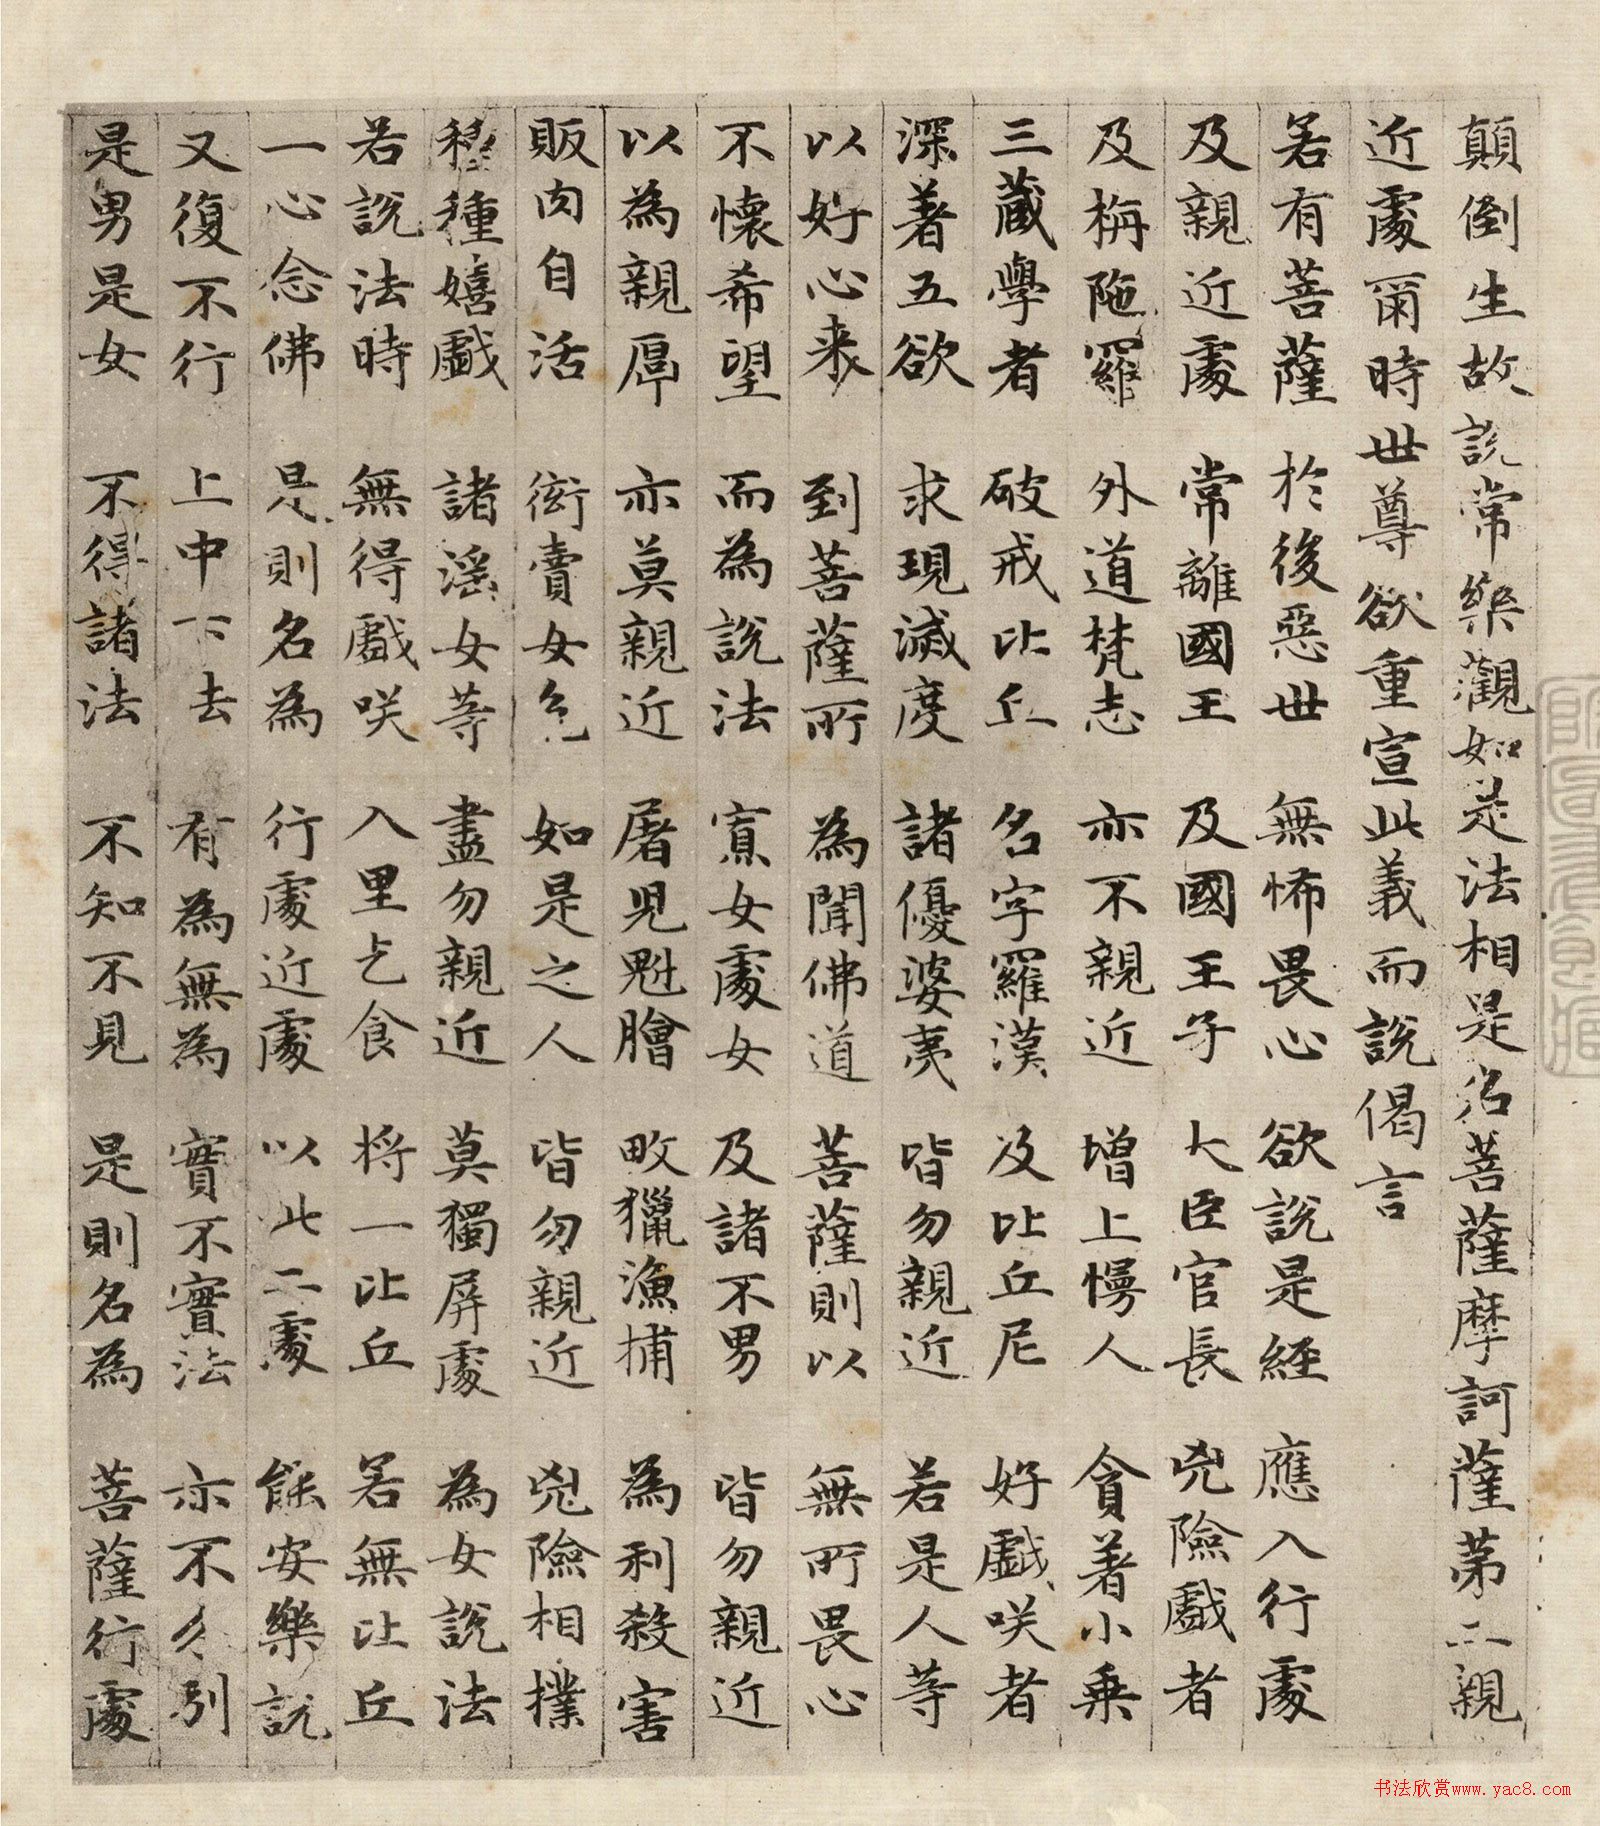 顛倒生故說常樂觀如是法相是名菩薩摩訶薩第二親
近處爾時世尊欲重宣此義而說偈言
若有菩薩 於後惡世 無怖畏心 欲說是經 應入行處
及親近處 常離國王 及國王子 大臣官長 兇險戲者
及栴陁羅 外道梵志 亦不親近 增上慢人 貪著小乘
三藏學者 破戒比丘 名字羅漢 及比丘尼 好戲咲者
深著五欲 求現滅度 諸優婆夷 皆勿親近 若是人等
以好心来 到菩薩所 為聞佛道 菩薩則以 無所畏心
不懷希望 而為說法 寡女處女 及諸不男 皆勿親近
以為親厚 亦莫親近 屠兒魁膾 畋獵漁捕 為利殺害
販肉自活 衒賣女色 如是之人 皆勿親近 兇險相撲
種種嬉戲 諸淫女等 盡勿親近 莫獨屏處 為女說法
若說法時 無得戲咲 入里乞食 将一比丘 若無比丘
一心念佛 是則名為 行處近處 以此二處 能安樂說
又復不行 上中下法 有為無為 實不實法 亦不分別
是男是女 不得諸法 不知不見 是則名為 菩薩行處
书法欣赏www.yac8.com